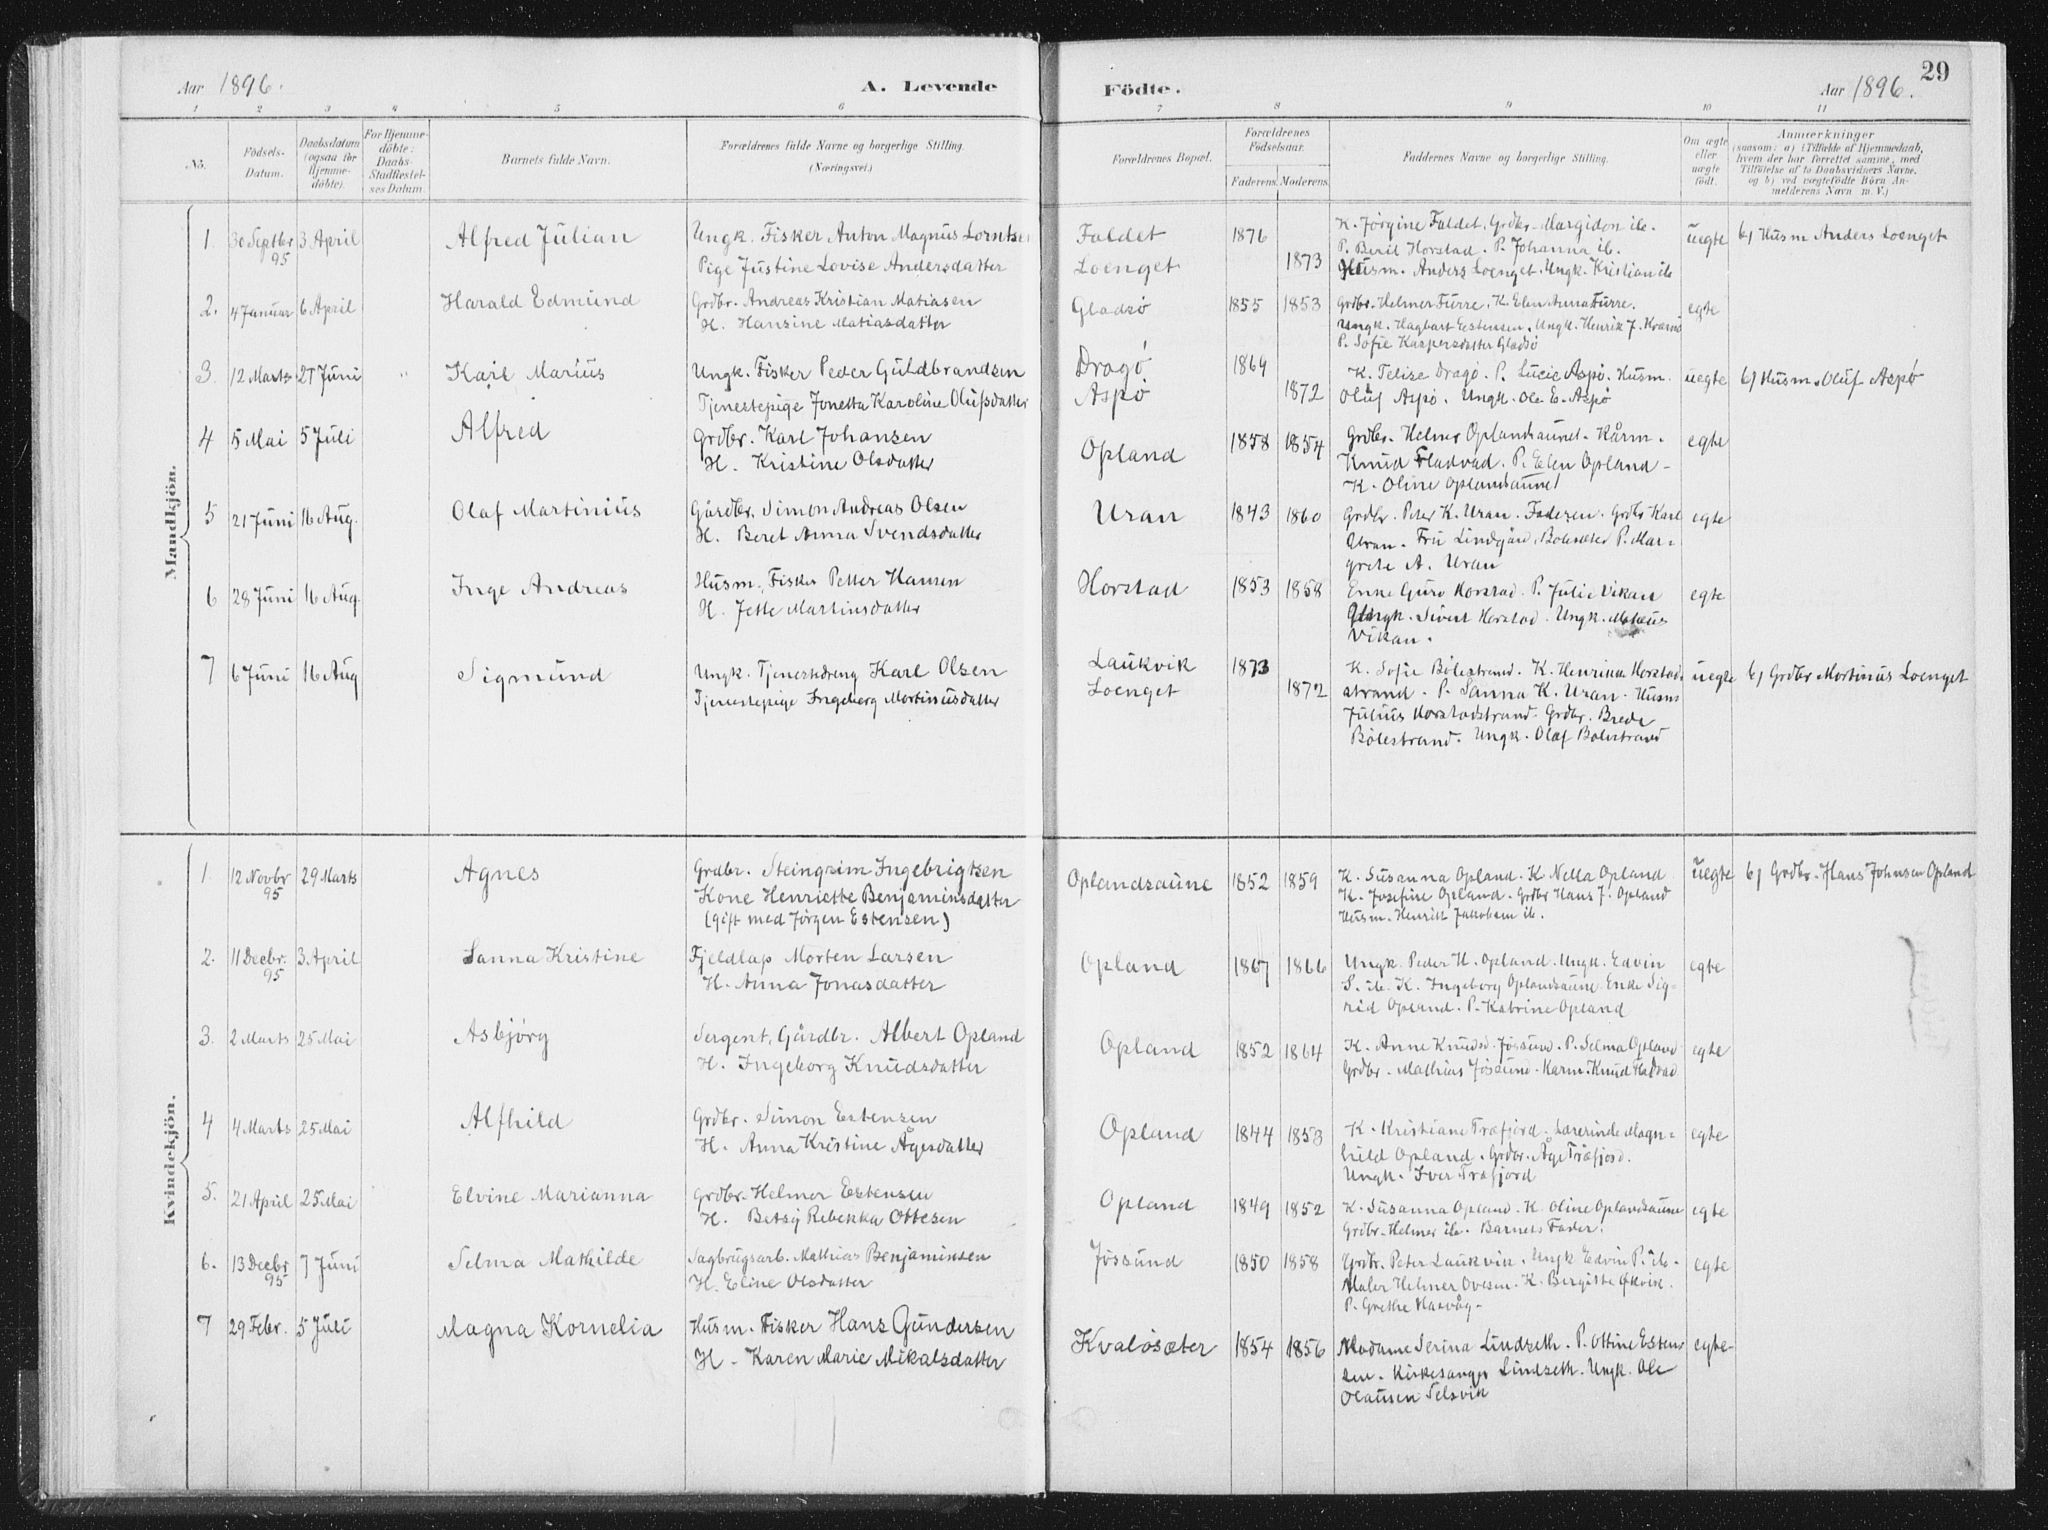 Aar 1896.
A. Levende
Födte.
Aar 1896.
29
1 2 3 4 5 6 7 8 9 10 11
No.
Födsels-
Datum.
Daabsdatum
(ogsaa for
Hjemme-
döbte).
For Hjemme-
döbte:
Daabs-
Stadfæstel-
ses Datum.
Barnets fulde Navn.
Forældrenes fulde Navne og borgerlige Stilling.
(Næringsvei.)
Forældrenes Bopæl.
Forældrenes
Födselsaar.
Faderens. Moderens.
Faddernes Navne og borgerlige Stilling.
Om ægte
eller
uægte
födt.
Anmærkninger
(saasom: a) i Tilfælde af Hjemmedaab,
hvem der har forrettet samme, med
Tilföielse af to Daabsvidners Navne,
og b) ved uægtefödte Börn An-
melderens Navn m. V.)
Mandkjön.
1. 30 Septbr 95 3 April Alfred Julian
Ungk. Fisker Anton Magnus Lorntsen
Pige Justine Lovise Andersdatter
Faldet 1876
Loenget 1873
K. Jørgine Faldet, Grdbr. Margidon ib.
P. Beril Horstad. P. Johanna ib.
Husm. Anders Loenget. Ungk. Kristian ib
uegte b) Husm Anders Loenget
2. 4 Januar 6 April Harald Edmund
Grdbr. Andreas Kristian Matiasen
H. Hansine Matiasdatter
Gladsø 1855 1853
Grdbr. Helmer Furre. K. Elen Anna Furre.
Ungk. Hagbart Estensen. Ungk. Henrik J. Kvarnø
P. Sofie Kaspersdatter Gladsø
egte
3. 12 Marts 27 Juni " Karl Marius
Ungk. Fisker Peder Guldbrandsen
Tjenestepige Jonetta Karoline Olufsdatter
Dragø 1869
Aspø 1872
K. Felise Dragø. P. Lucie Aspø. Husm.
Oluf Aspø. Ungk. Ole E. Aspø
uegte b) Husm. Oluf Aspø
4 5 Mai 5 Juli Alfred
Grdbr. Karl Johansen
H. Kristine Olsdatter
Opland 1858 1854
Grdbr. Helmer Oplandsaunet. Kårm.
Knud Fladvad. P. Elen Opland -
K. Oline Oplandsaunet
egte
5 21 Juni 16 Aug. Olaf Martinius
Gårdbr. Simon Andreas Olsen
H. Beret Anna Svendsdatter
Uran 1843 1860
Grdbr. Peter K. Uran. Faderen. Grdbr Karl
Uran. Fru Lindgård, Bolesæter P. Mar-
grete A. Uran
egte
6 28 Juni 16 Aug. Inge Andreas
Husm. Fisker Petter Hansen
H. Jette Martinsdatter
Horstad 1853 1858
Enke Guro Horstad. P. Julie Vikan
Ungk. Sivert Horstad. Ungk. Mateus
Vikan.
egte
7 6 Juni 16 Aug Sigmund
Ungk. Tjenestedreng Karl Olsen
Tjenestepige Ingeborg Mortinusdatter
Laukvik 1873
Loenget 1872
K. Sofie Bølestrand. K. Henrikka Horstad-
strand. P. Sanna K. Uran. Husm
Julius Horstadstrand. Grdbr. Brede
Bølestrand. Ungk. Olaf Bølestrand
uegte b) Grdbr Mortinus Loenget
Kvindekjön.
1. 12 Novbr 95 29 Marts Agnes
Grdbr. Steingrim Ingebrigtsen
Kone Henriette Benjaminsdatter
(gift med Jørgen Estensen)
Oplandsaune 1852 1859
K. Susanna Opland. K. Nella Opland
K. Josefine Opland. Grdbr Hans J. Opland
Husm. Henrik Jakobsen ib.
uegte b) Grdbr. Hans Johnsen Opland
2. 11 Decbr. 95 3 April Sanna Kristine
Fjeldlap Morten Larsen
H. Anna Jonasdatter
Opland 1867 1866
Ungk. Peder H. Opland. Ungk. Edvin
S. ib. K. Ingeborg Oplandsaune. Enke Sig-
rid Opland. P. Katrine Opland
egte
3. 2 Marts 25 Mai Asbjørg
Sergent, Gårdbr. Albert Opland
H. Ingeborg Knudsdatter
Opland 1852 1864
K. Anne Knudsd. Jøssund. P. Selma Opland
Grdbr. Mathias Jøssund. Karm. Knud Fladvad
egte
4 4 Marts 25 Mai Alfhild
Grdbr. Simon Estensen
H. Anna Kristine Ågesdatter
Opland 1844 1853
K. Kristiane Træfjord. Lærerinde Magn-
hild Opland. Grdbr. Åge Træfjord.
Ungk. Iver Træfjord
egte
5. 21 April 25 Mai Elvine Marianna
Grdbr. Helmer Estensen
H. Betsy Rebekka Ottesen
Opland 1849 1852
K. Susanna Opland. K. Oline Oplandsaune
Grdbr. Helmer ib. Barnets Fader.
egte
6. 13 Decbr 95 7 Juni Selma Mathilde
Sagbrugsarb. Mathias Benjaminsen
H. Eline Olsdatter
Jøssund 1850 1858
Grdbr. Peter Laukvik. Ungk Edvin P. ib.
Maler Helmer Ovesen. K. Bergitte Økvik.
P. Grethe Hasvåg.
egte
7 29 Febr. 5 Juli Magna Kornelia
Husm. Fisker Hans Gundersen
H. Karen Marie Mikalsdatter
Kvaløsæter 1854 1856
Madame Serina Lindseth. P. Ottine Esten-
sen. Kirkesanger Lindseth. Ungk. Ole
Olausen Selsvik
egte